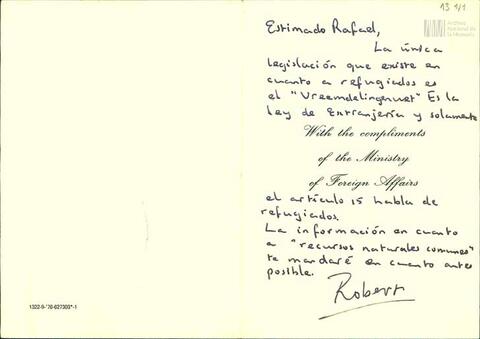 13 1/1
Archivo
Nacional de
la Memoria
Estimado Rafael,
La única
legislación que existe en
cuanto a refugiados es
el "Vreemdelingenwet" Es la
Ley de Extranjería y solamente
With the compliments
of the Ministry
of Foreign Affairs
el artículo 15 habla de
refugiados.
La información en cuanto
a "recursos naturales comunes"
te mandaré en cuanto antes
posible.
Robert